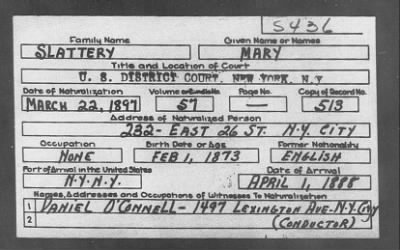 S436
Family Name Given Name or Names
SLATTERY MARY
Title and Location of Court
U. S. DISTRICT COURT, NEW YORK, N.Y.
Date of Naturalization Volume or Bundle No. Page No. Copy of Record No.
MARCH 22, 1897 57 — 513
Address of Naturalized Person
232- EAST 26 ST. N.Y. CITY
Occupation Birth Date or Age Former Nationality
NONE FEB 1, 1873 ENGLISH
Port of Arrival in the United States Date of Arrival
N.Y. N.Y. APRIL 1, 1888
Names, Addresses and Occupations of Witnesses To Naturalization
1 DANIEL O'CONNELL - 1497 LEXINGTON AVE- N.Y. City
2 (CONDUCTOR)